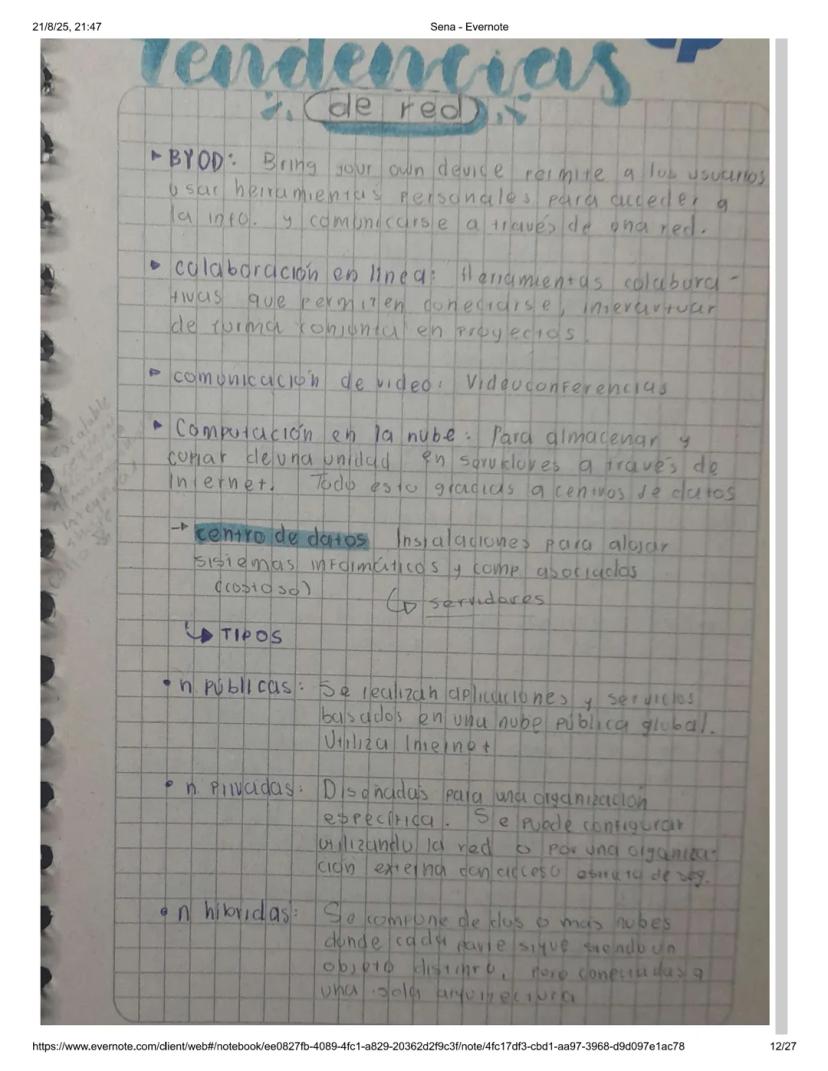 21/8/25, 21:47
Sena - Evernote
Tendencias
de red
BYOD: Bring your own device permite a los usuarios
usar herramientas personales para acceder a
la info. y comunicarse a través de una red.
colaboración en linea: Herramientas colabora-
tivas que permiten conectarse, interactuar
de forma conjunta en proyectos.
comunicación de video: Videoconferencias
Computación en la nube: Para almacenar y
copiar de una unidad en servidores a través de
Internet. Todo esto gracias a centros de datos
escalable
→ centro de datos Instalaciones para alojar
sistemas informáticos y comp asociados
(costoso)
↳ servidores
↳ TIPOS
• n públicas: Se realizan aplicaciones y servicios
basados en una nube pública global.
Utiliza Internet
• n. Privadas: Diseñadas para una organización
específica. Se puede configurar
utilizando la red o por una organiza-
ción externa con acceso de seg.
• n hibridas: Se compone de dos o mas nubes
donde cada parte sigue siendo un
objeto distinto, pero conectadas a
una sola arquitectura
https://www.evernote.com/client/web#/notebook/ee0827fb-4089-4fc1-a829-20362d2f9c3f/note/4fc17df3-cbd1-aa97-3968-d9d097e1ac78
12/27